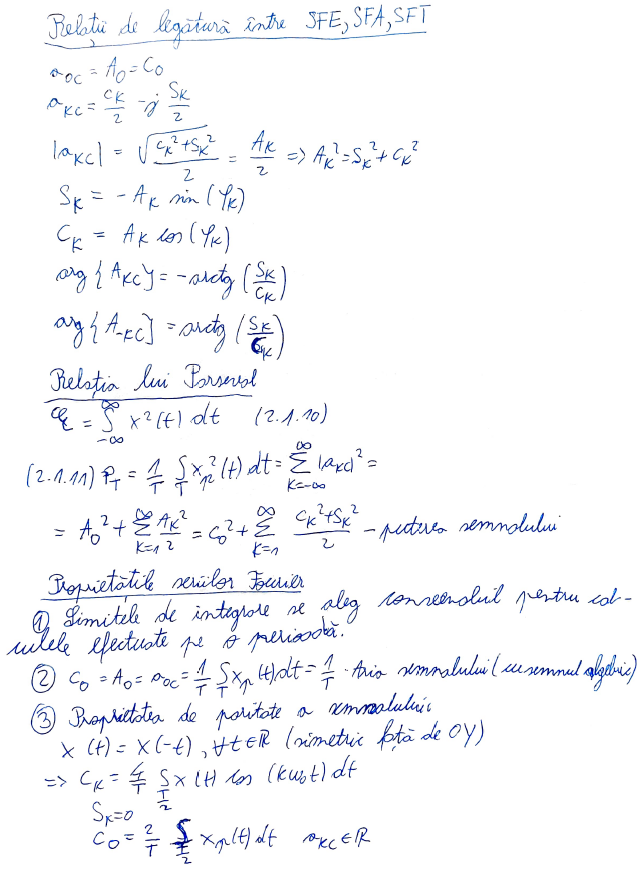 Relații de legătură între SFE, SFA, SFT
a₀c = A₀ = C₀
aKC = cK/2 - j SK/2
|aKC| = √(cK²+SK²)/2 = AK/2 => AK² = SK² + CK²
SK = -AK sin(φK)
CK = AK cos(φK)
arg{AKC} = -arctg(SK/CK)
arg{A-KC} = arctg(SK/CK)
Relația lui Parseval
E = ∫_{-∞}^{∞} x²(t) dt (2.1.10)
(2.1.11) PT = 1/T ∫_T xp²(t) dt = Σ_{K=-∞}^{∞} |aKC|² =
= A₀² + Σ_{K=1}^{∞} AK²/2 = C₀² + Σ_{K=1}^{∞} (CK²+SK²)/2 - puterea semnalului
Proprietățile seriilor Fourier
① Limitele de integrare se aleg convenabil pentru cal-
culele efectuate pe o perioadă.
② C₀ = A₀ = a₀c = 1/T ∫_T xp(t)dt = 1/T · Aria semnalului (cu semnul algebric)
③ Proprietatea de paritate a semnalului:
x(t) = x(-t), ∀t∈ℝ (simetric față de OY)
=> CK = 4/T ∫_{T/2} x(t) cos(kω₀t) dt
SK=0
C₀ = 2/T ∫_{T/2} xp(t) dt aKC ∈ ℝ